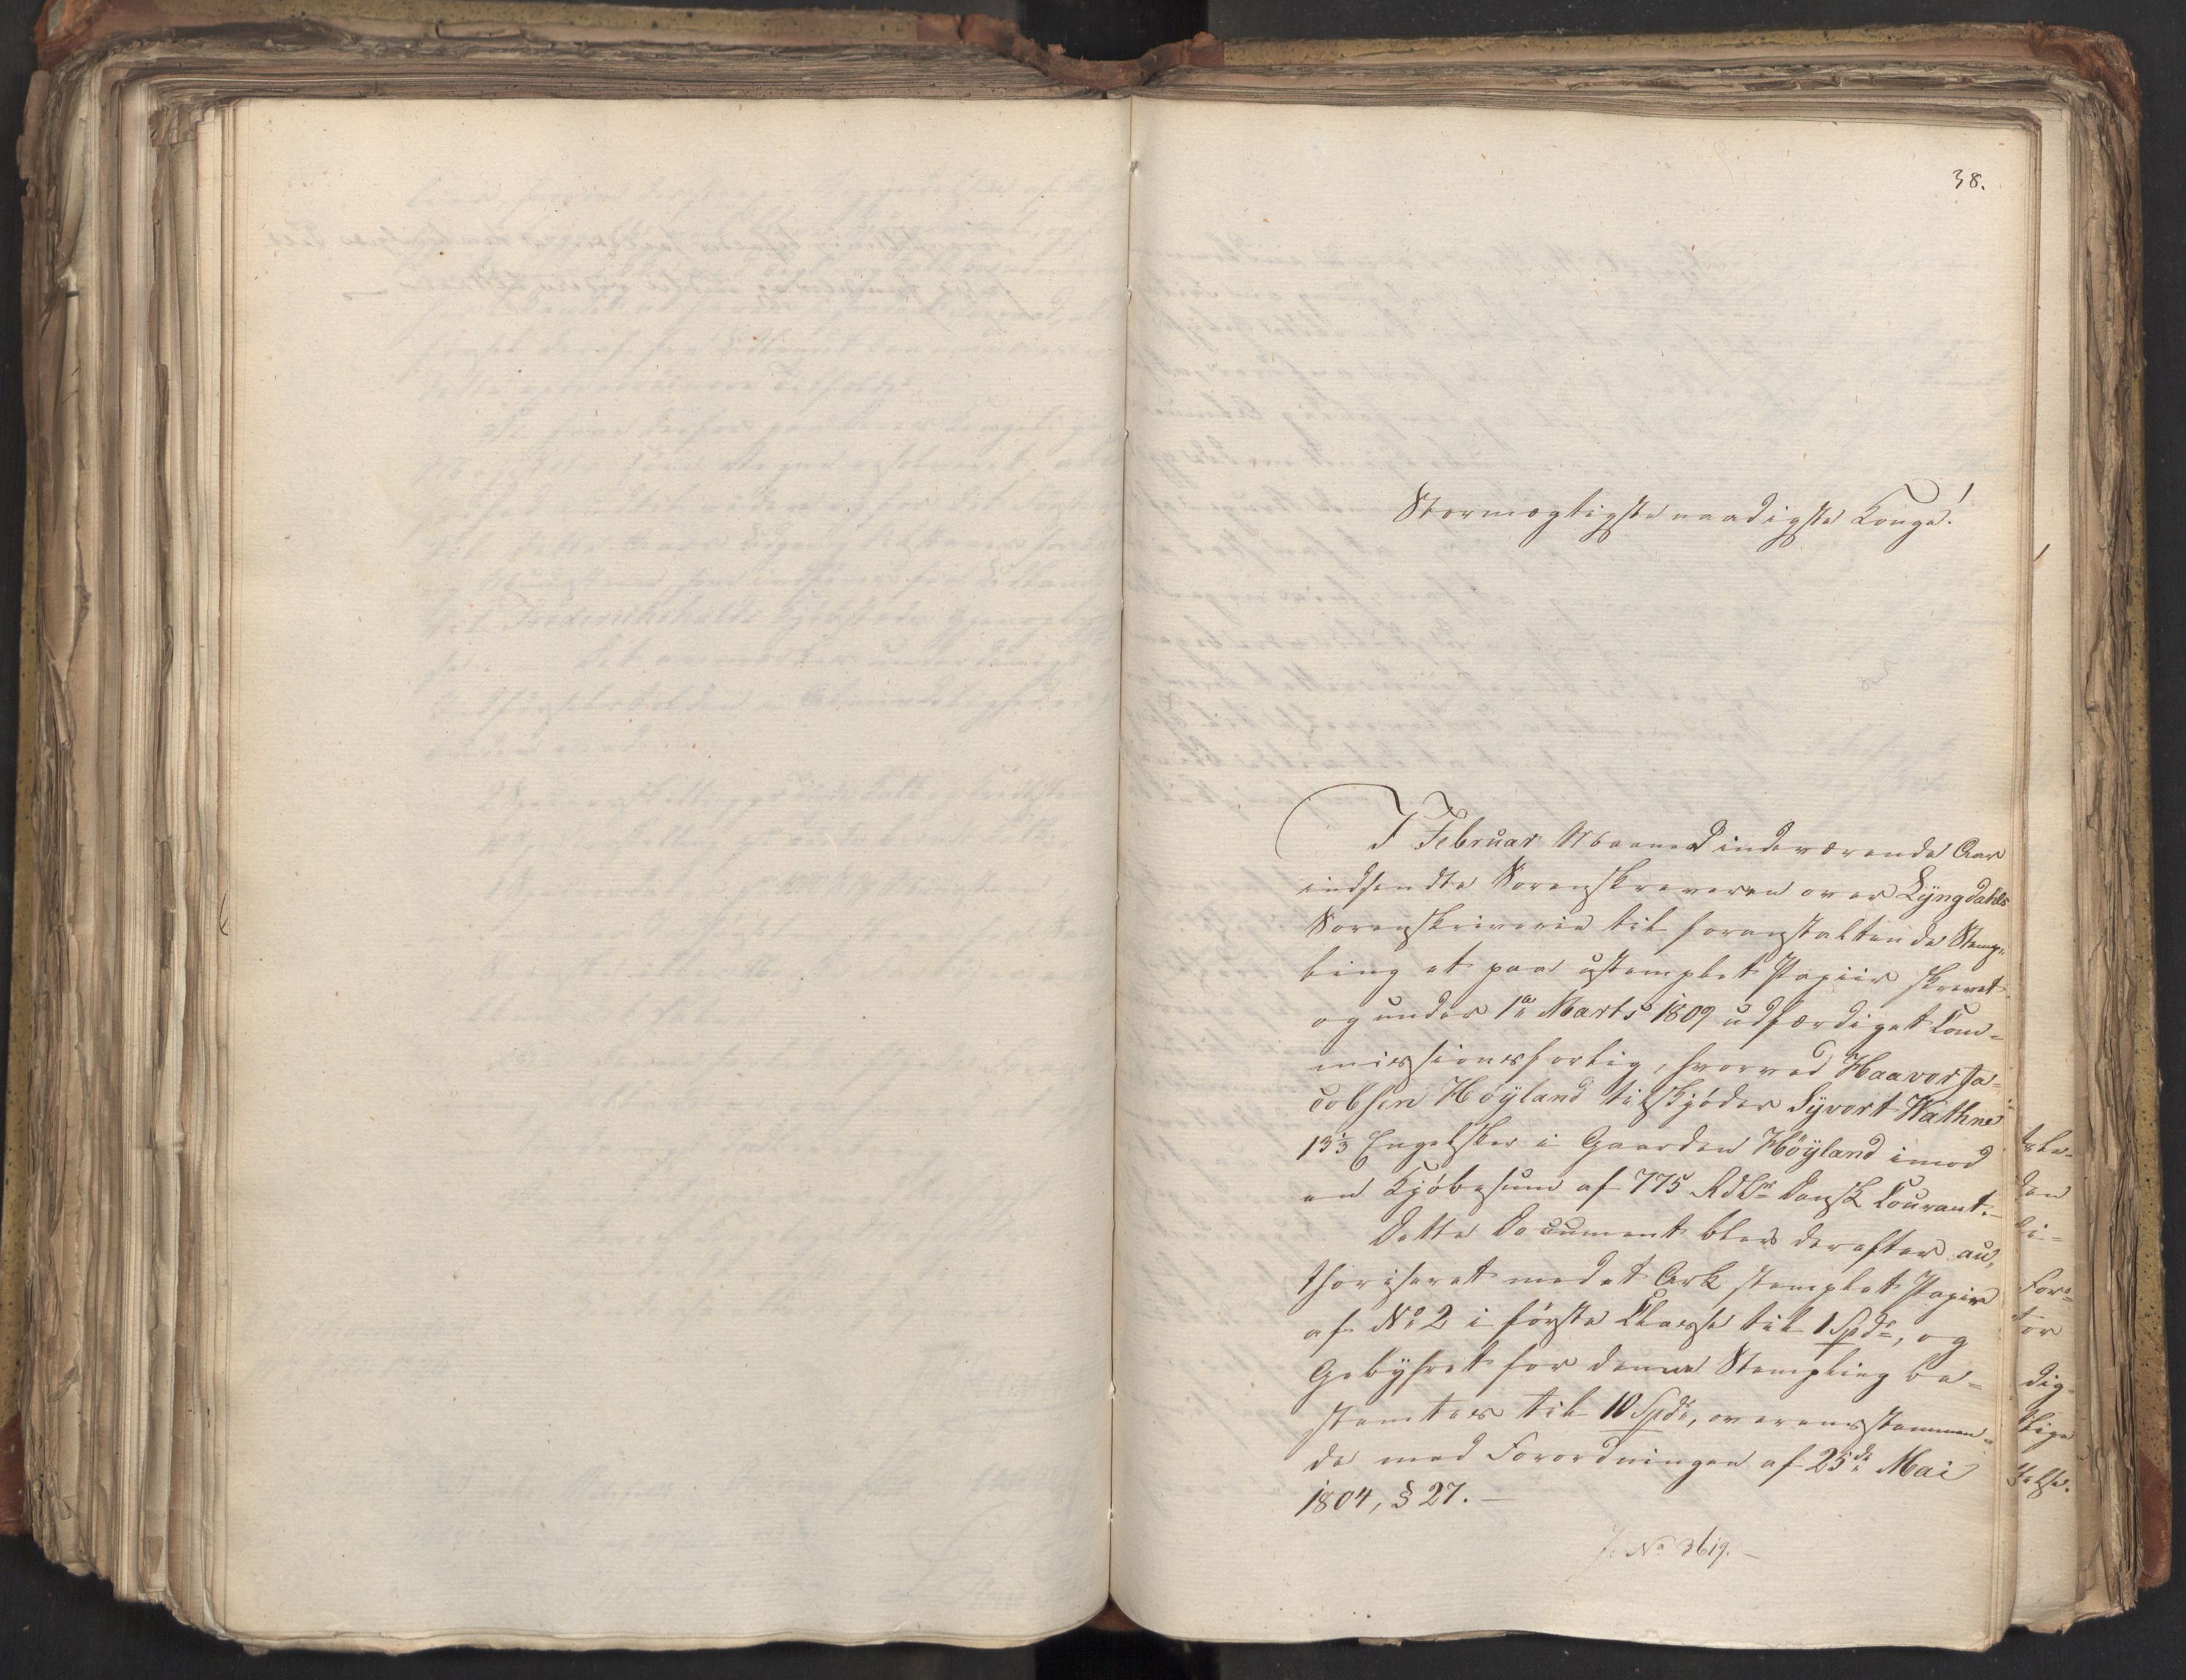 38.
Stormægtigste naadigste Konge!
I Februar Maaned indeværende Aar
indsendte Sorenskriveren over Lyngdahls
Sorenskriverie til foranstaltende Stemp-
ling et paa ustemplet Papiir skrevet
og under 1ste Marts 1809 udfærdiget Com-
missionsforlig, hvorved Haavor Ja-
cobsen Höyland tilskjöder Syvert Wathne
13 1/3 Engelsker i Gaarden Höyland imod
en Kjöbesum af 775 Rdlr Dansk Courant.
Dette Document blev derefter au-
thoriseret med et Ark stemplet Papir
af No 2 i förste Classe til 1 Spdr, og
Gebyhret for denne Stempling be-
stemtes til 10 Spdr, overensstemmen-
de med Forordningen af 25de Mai
1804, § 27. –
J. No 3619. –
den
For-
for
dig-
lige